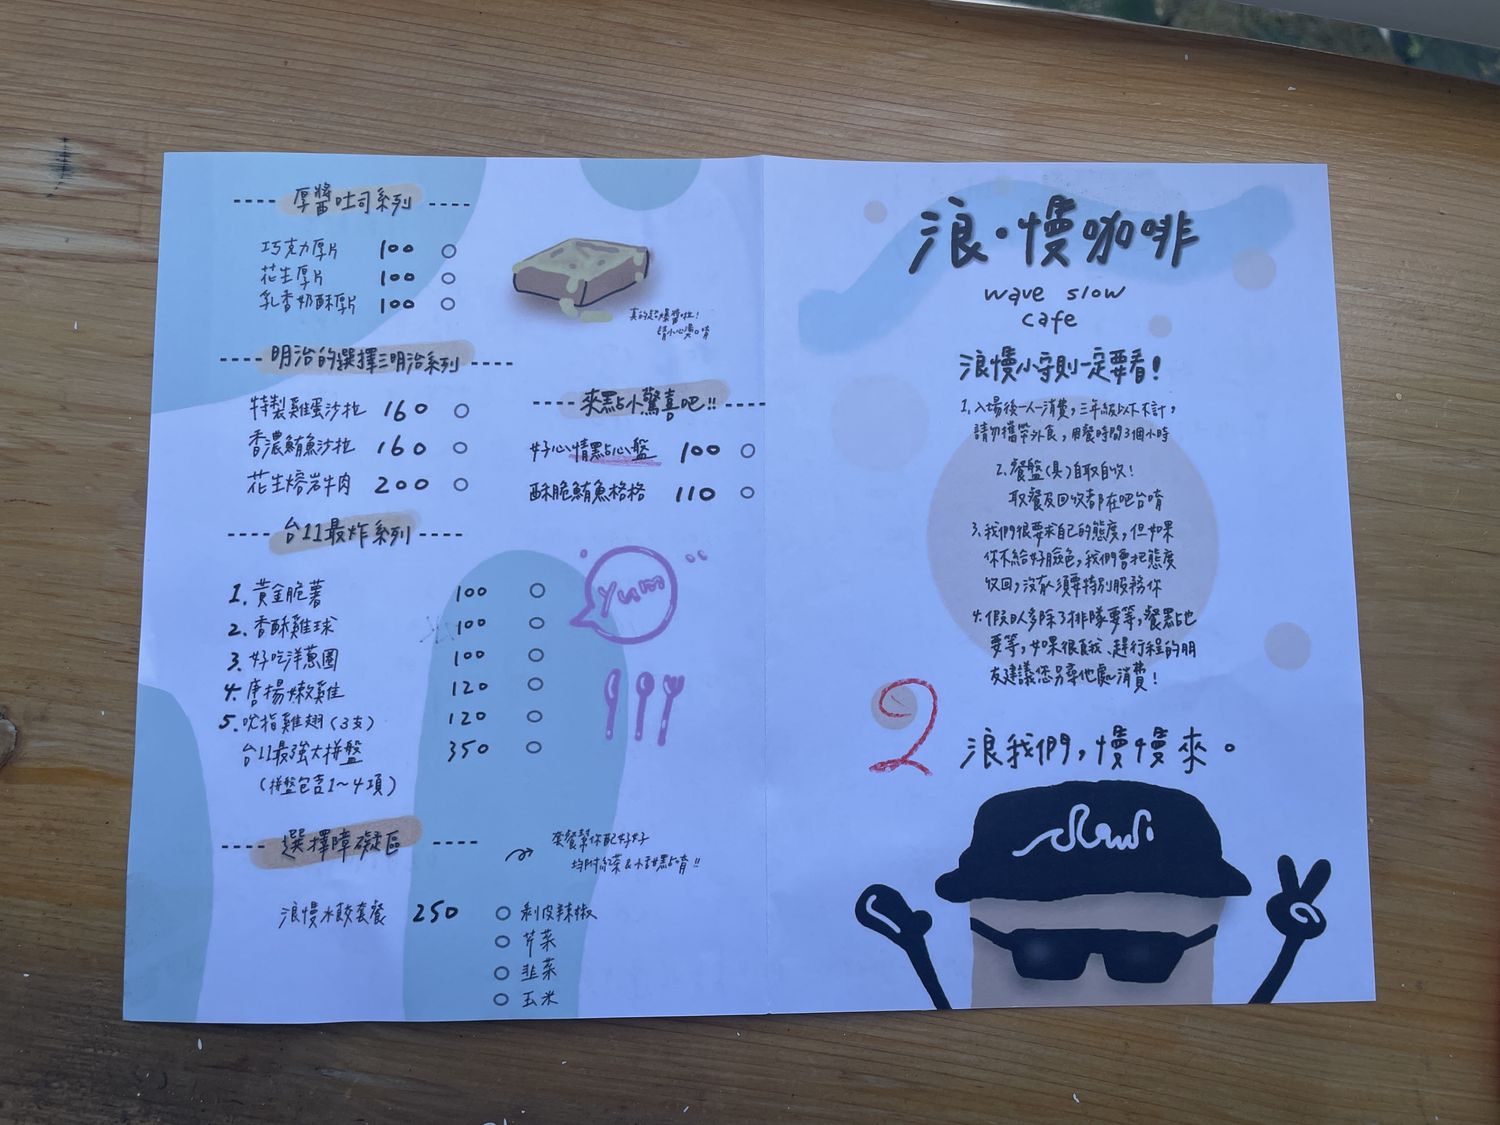 厚醬吐司系列
巧克力厚片 100
花生厚片 100
乳香奶酥厚片 100
真的超爆醬啦!
請小心燙口唷
明治的選擇三明治系列
特製雞蛋沙拉 160
香濃鮪魚沙拉 160
花生熔岩牛肉 200
來點小驚喜吧!!
好心情點心盤 100
酥脆鮪魚格格 110
台11最炸系列
1. 黃金脆薯 100
2. 香酥雞球 100
3. 好吃洋蔥圈 100
4. 唐揚嫩雞 120
5. 吮指雞翅(3支) 120
台11最強大拼盤 350
(拼盤包含1~4項)
Yum
選擇障礙區
套餐幫你配好好
均附小菜&小甜點唷!!
浪慢水餃套餐 250
剝皮辣椒
芹菜
韭菜
玉米
浪·慢咖啡
wave slow
cafe
浪慢小守則一定要看!
1. 入場後一人一消費,三年級以下不計,
請勿攜帶外食,用餐時間3個小時
2. 餐盤(具)自取自收!
取餐及回收都在吧台唷
3. 我們很要求自己的態度,但如果
你不給好臉色,我們會把態度
收回,沒有人須要特別服務你
4. 假日人多除了排隊要等,餐點也
要等,如果很餓、趕行程的朋
友建議您另尋他處消費!
2
浪我們,慢慢來。